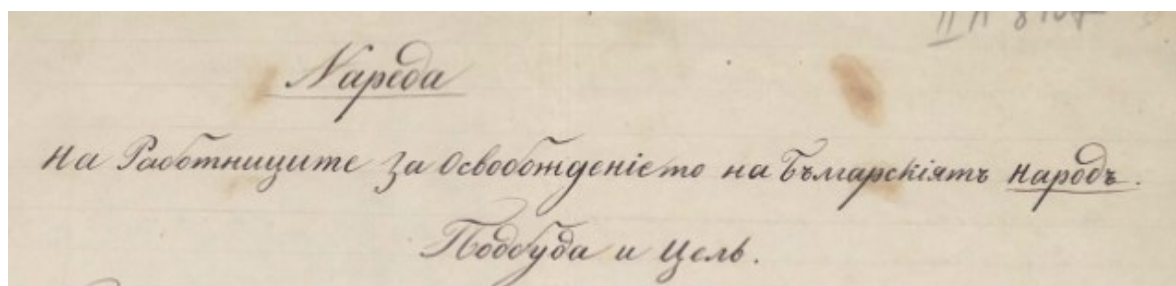 Нареда
на Работниците за Освобожденіето на Българскіятъ народъ.
Подбуда и Цель.